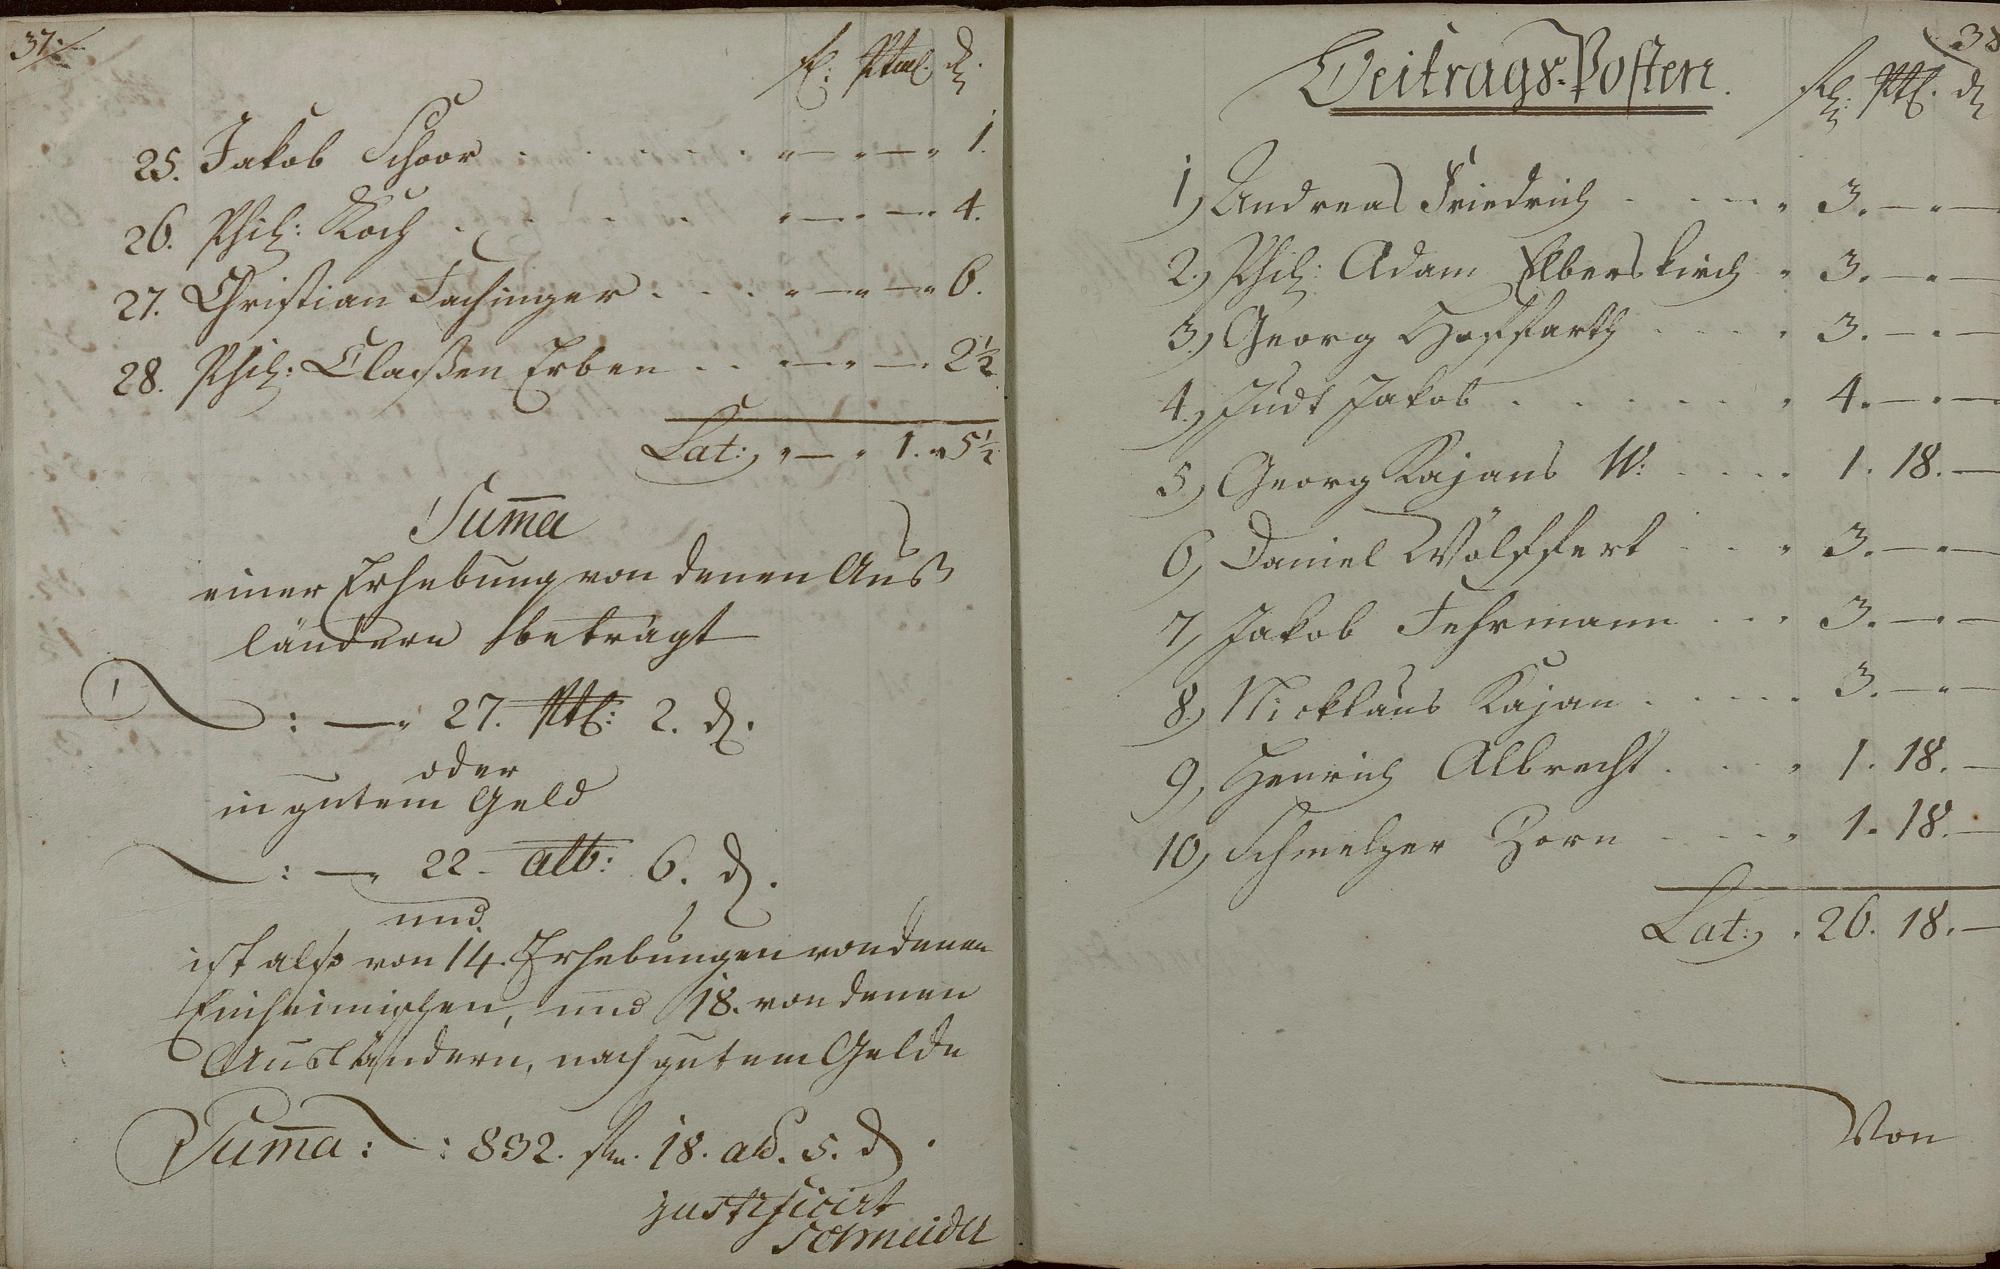 37.
fl: Ptml. d.
25. Jakob Schoor . . . . . . " — " — " 1.
26. Phil: Koch . . . . . " — " — " 4.
27. Christian Fachinger . . . " — " — " 6.
28. Phil: Claaßen Erben . . " — " — " 2½
Lat: " — " 1. " 5½
Summa
einer Erhebung von denen Aus
ländern beträgt
: — " 27. Ptl: 2. d.
oder
in gutem Geld
: — " 22 - alb: 6. d.
und
ist also von 14. Erhebungen von denen
Einheimischen, und 18. von denen
Ausländern, nach gutem Gelde
Summa: : 832. fl. 18. alb. 5. d.
justificirt
Schneider
38
Beitrags-Posten.
fl: Ptl. d
1, Andreas Friedrich . . . . " 3. — " —
2, Phil: Adam Elberskirch " 3. — " —
3, Georg Hoffarth . . . . " 3. — " —
4, Judt Jakob . . . . . " 4. — " —
5, Georg Kajans W: . . . . 1. 18. —
6, Daniel Wölffert . . . " 3. — " —
7, Jakob Fehrmann . . . 3. — " —
8, Nicklaus Kajan . . . . . 3. — " —
9, Henrich Albrecht . . . " 1. 18. —
10, Schmelzer Zorn . . . . " 1. 18. —
Lat: . 26. 18. —
Von